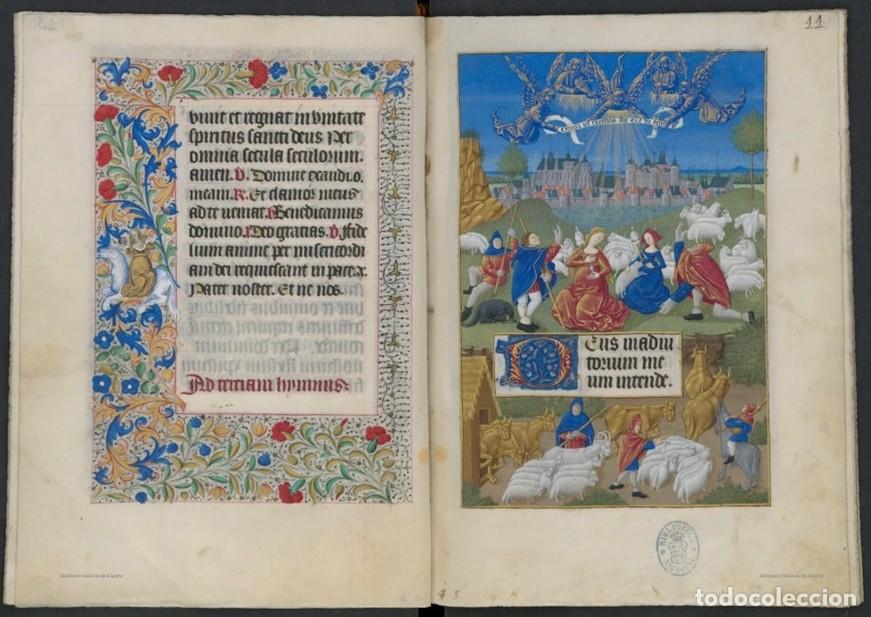 vivit et regnat in unitate
spiritus sancti deus Per
omnia secula seculorum.
amen. V. Domine exaudi o.
meam. R. Et clamor meus
ad te veniat. Benedicamus
domino. Deo gracias. V. fide
lium anime per misericordi
am dei requiescant in pace.
Pater noster. Et ne nos.
Ad terciam hymnus.
11
Gloria in excelsis
D
Eus in adiu
torium me
um intende.
Biblioteca Nacional de España
Biblioteca Nacional de España
todocoleccion